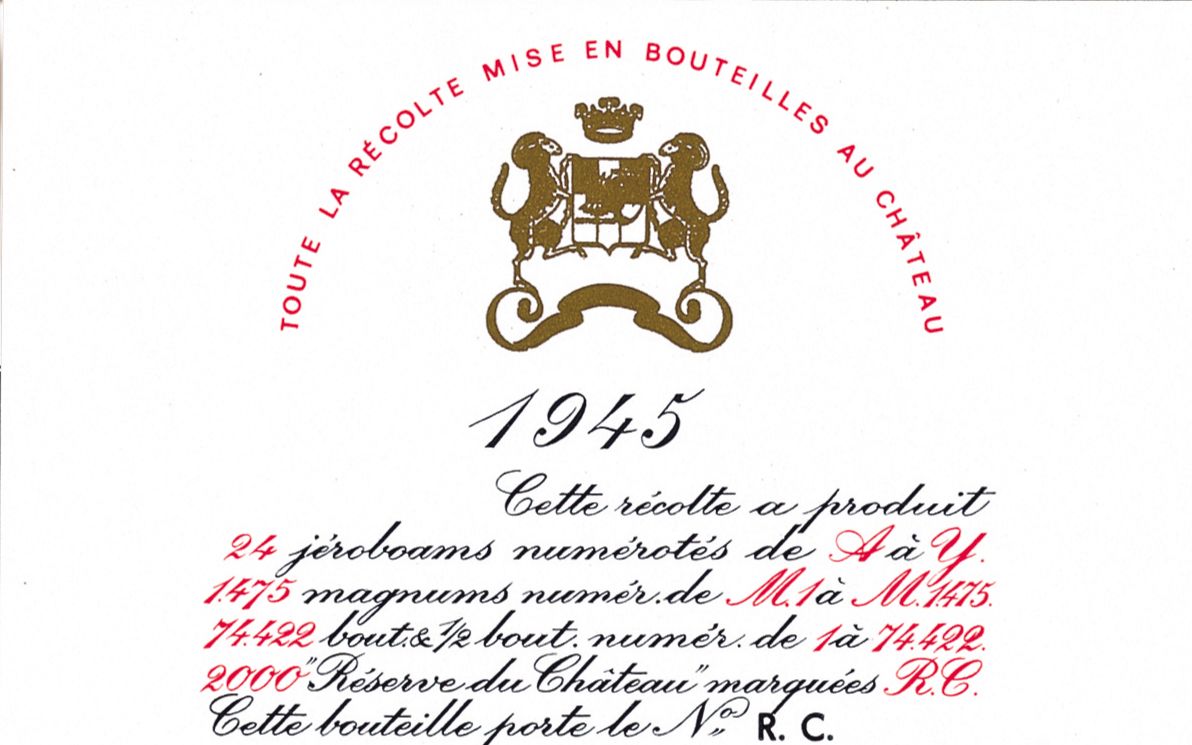 TOUTE LA RÉCOLTE MISE EN BOUTEILLES AU CHÂTEAU
1945
Cette récolte a produit
24 jéroboams numérotés de A à Y.
1.475 magnums numér. de M.1 à M.1.475.
74.422 bout. & 1/2 bout. numér. de 1 à 74.422.
2000 "Réserve du Château" marquées R.C.
Cette bouteille porte le No. R. C.